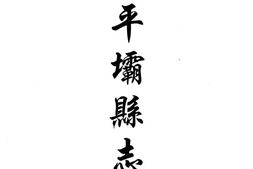 平壩縣志